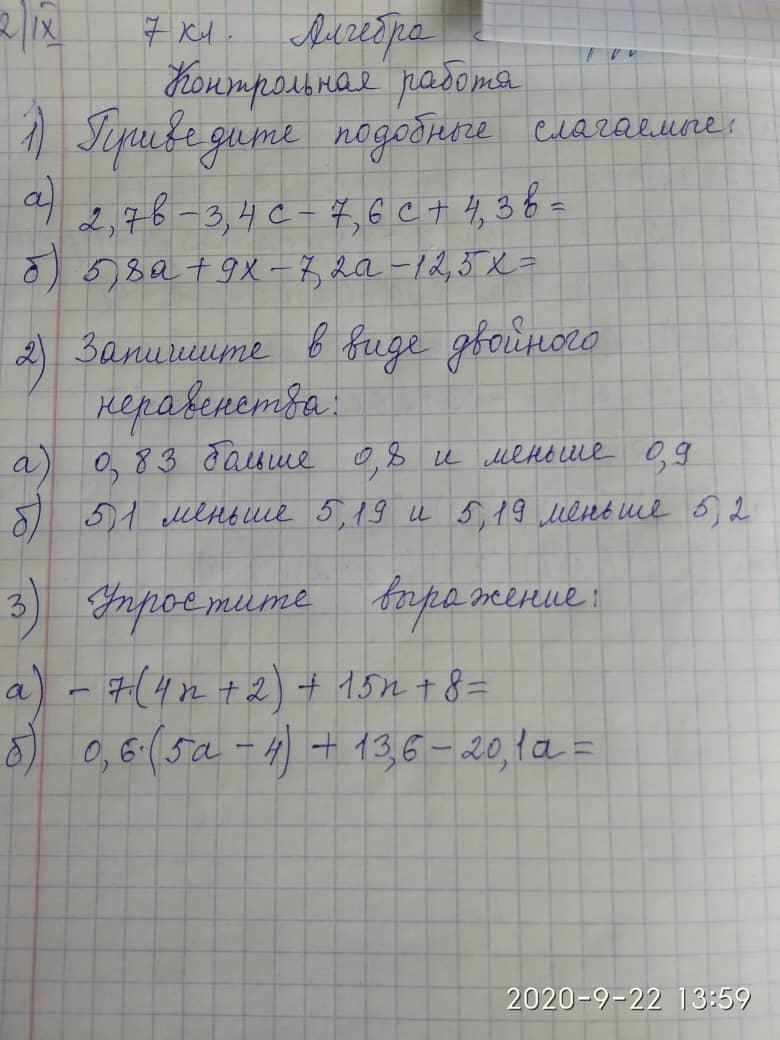 2/IX 7 кл. Алгебра
Контрольная работа
1) Приведите подобные слагаемые:
а) 2,7в - 3,4с - 7,6с + 4,3в =
б) 5,8а + 9х - 7,2а - 12,5х =
2) Запишите в виде двойного
неравенства:
а) 0,83 больше 0,8 и меньше 0,9
б) 5,1 меньше 5,19 и 5,19 меньше 5,2
3) Упростите выражение:
а) - 7·(4n + 2) + 15n + 8 =
б) 0,6·(5а - 4) + 13,6 - 20,1а =
2020-9-22 13:59